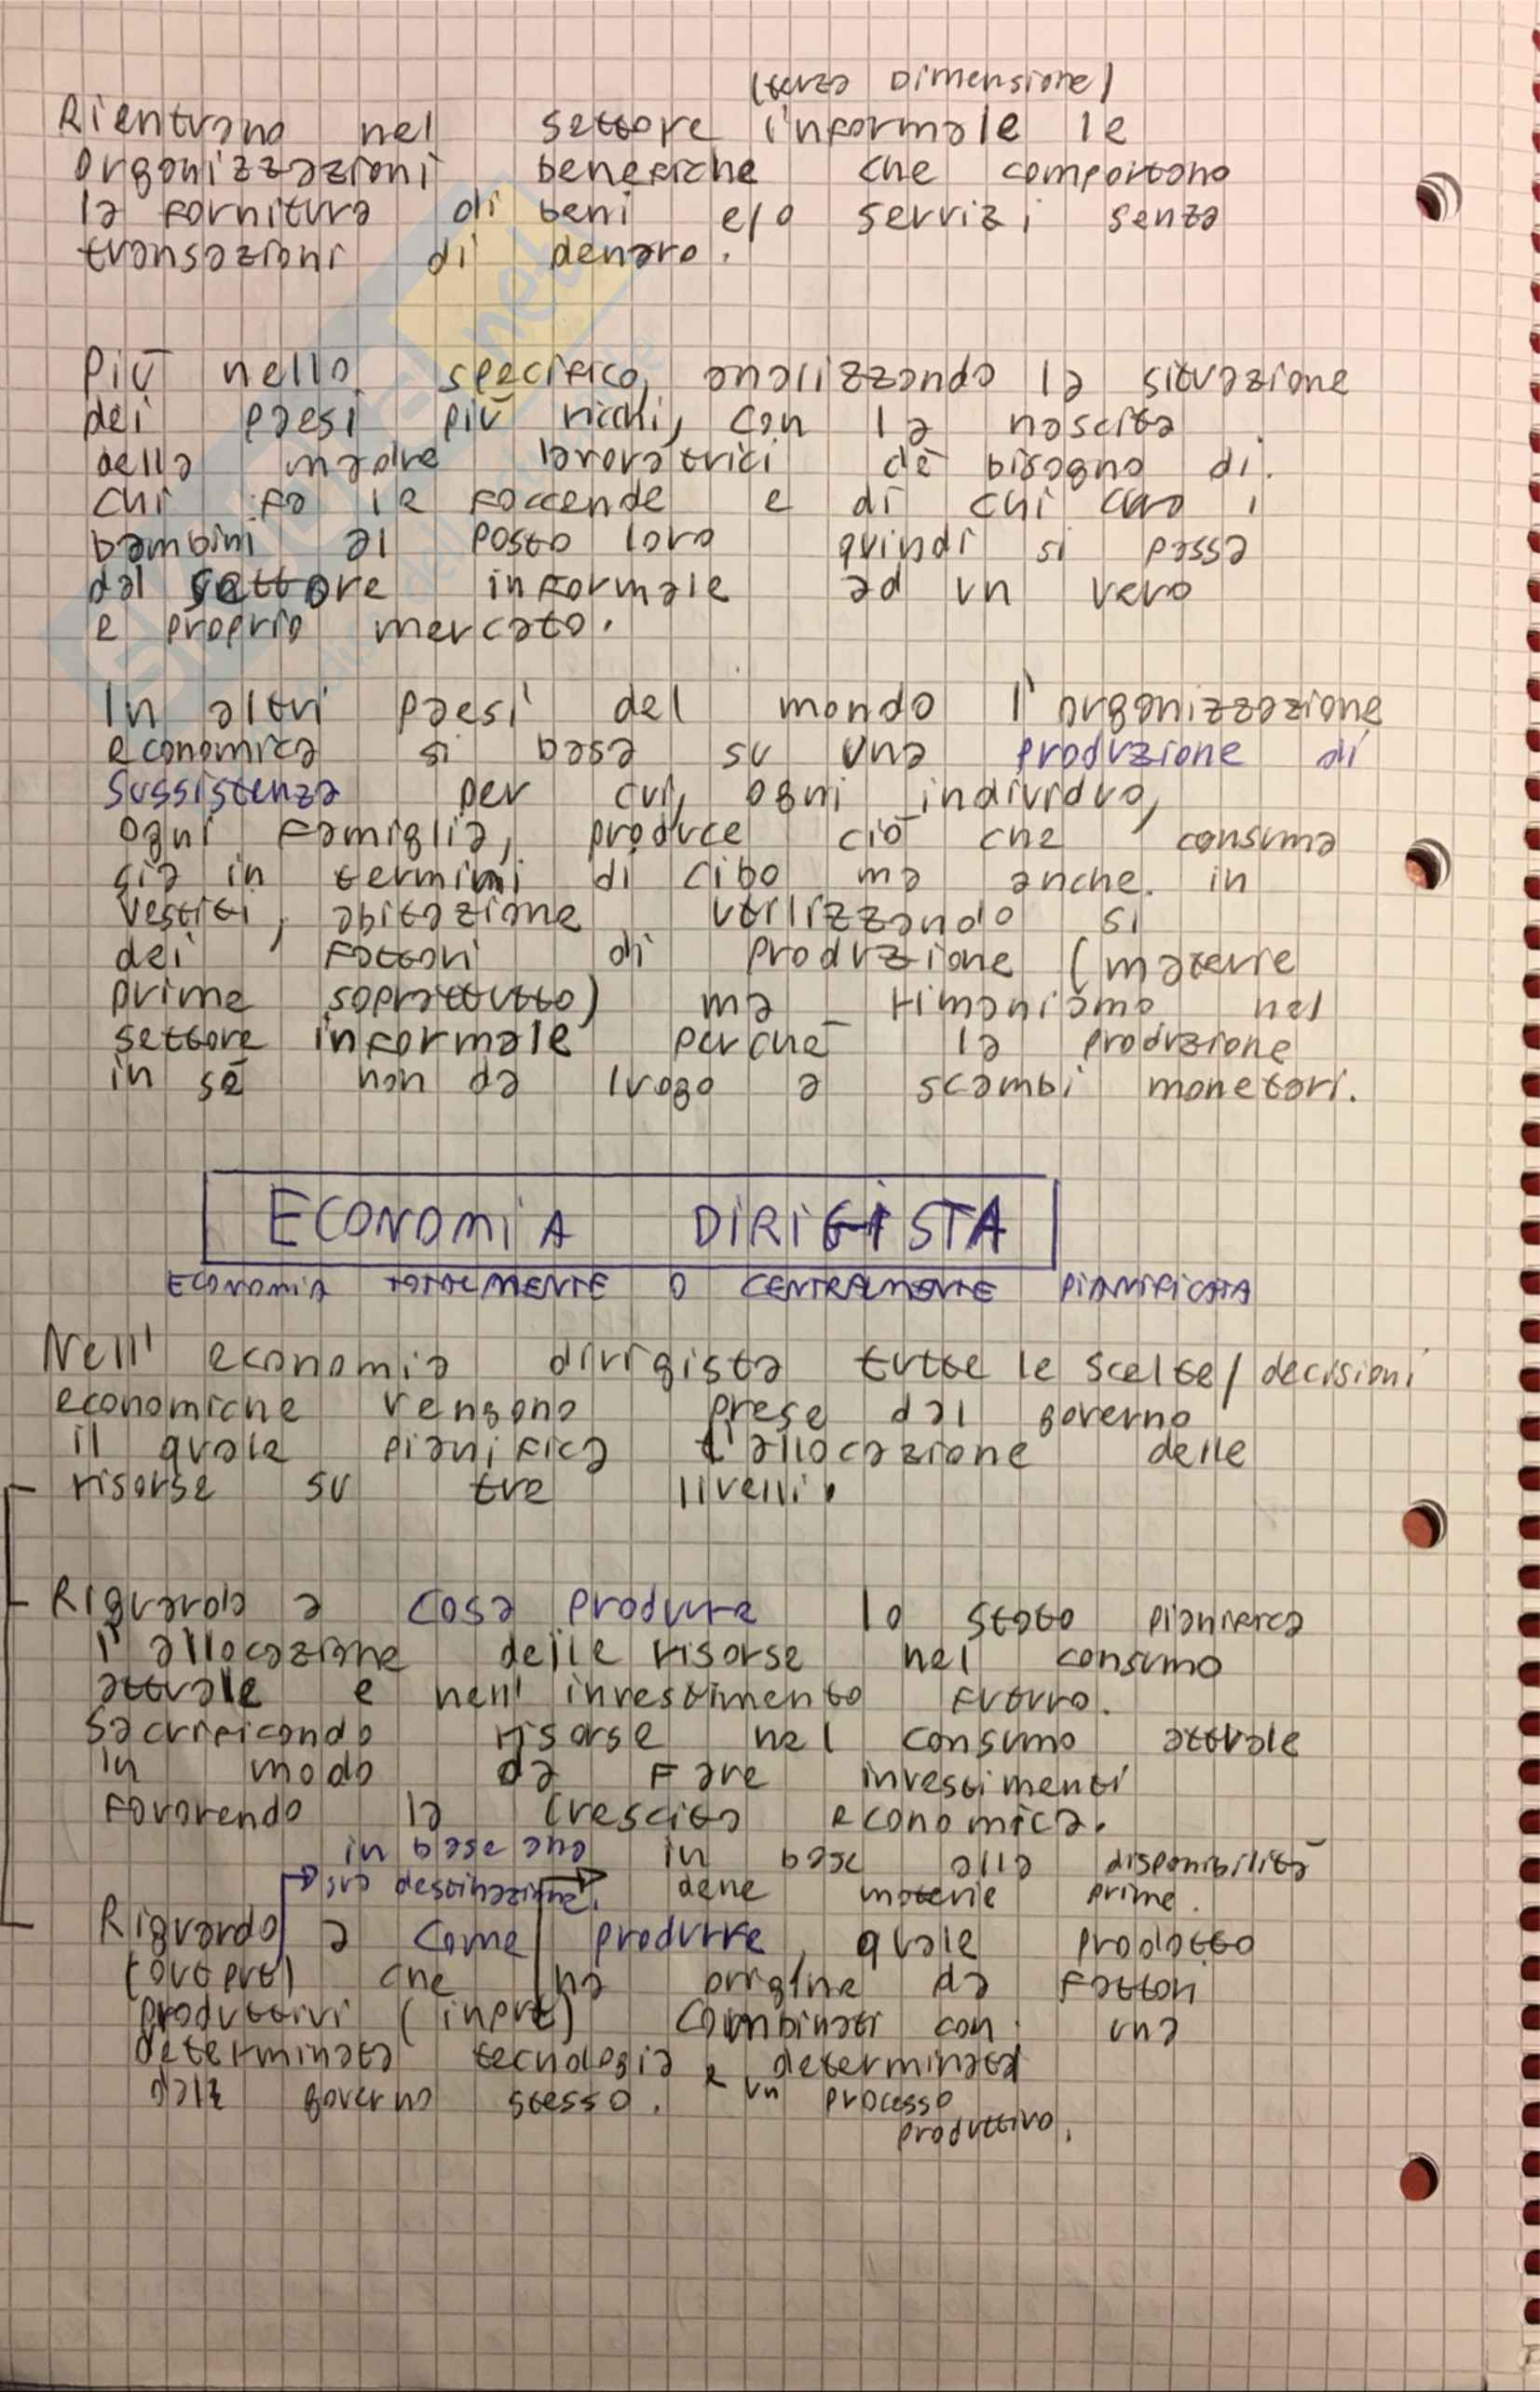 (terza Dimensione)
Rientrano nel settore informale le
organizzazioni benefiche che comportano
la fornitura di beni e/o servizi senza
transazioni di denaro.
Più nello specifico, analizzando la situazione
dei paesi più ricchi, con la nascita
della madre lavoratrici c'è bisogno di
chi fa le faccende e di chi cura i
bambini al posto loro quindi si passa
dal settore informale ad un vero
e proprio mercato.
In altri paesi del mondo l'organizzazione
economica si basa su una produzione di
sussistenza per cui, ogni individuo,
ogni famiglia, produce ciò che consuma
sia in termini di cibo ma anche in
vestiti, abitazione utilizzando si
dei fattori di produzione (materie
prime soprattutto) ma rimaniamo nel
settore informale perché la produzione
in sé non dà luogo a scambi monetari.
ECONOMIA DIRIGISTA
ECONOMIA TOTALMENTE O CENTRALMENTE PIANIFICATA
Nell' economia dirigista tutte le scelte/decisioni
economiche vengono prese dal governo
il quale pianifica l'allocazione delle
risorse su tre livelli.
Riguardo a cosa produrre lo stato pianifica
l'allocazione delle risorse nel consumo
attuale e nell'investimento futuro.
Sacrificando risorse nel consumo attuale
in modo da fare investimenti
favorendo la crescita economica.
in base alla in base alla disponibilità
sua destinazione. delle materie prime.
Riguardo a come produrre, quale prodotto
(output) che ha origine da fattori
produttivi (input) combinati con una
determinata tecnologia e determinata
dal governo stesso. un processo
produttivo.